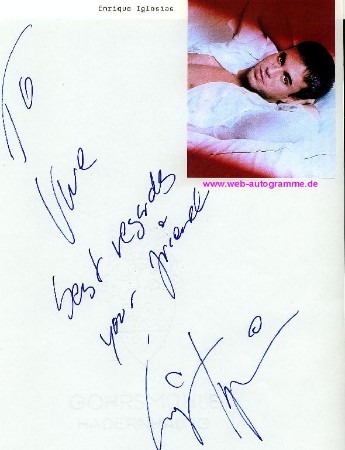 Enrique Iglesias
www.web-autogramme.de
To
Uwe
best regards
your friend